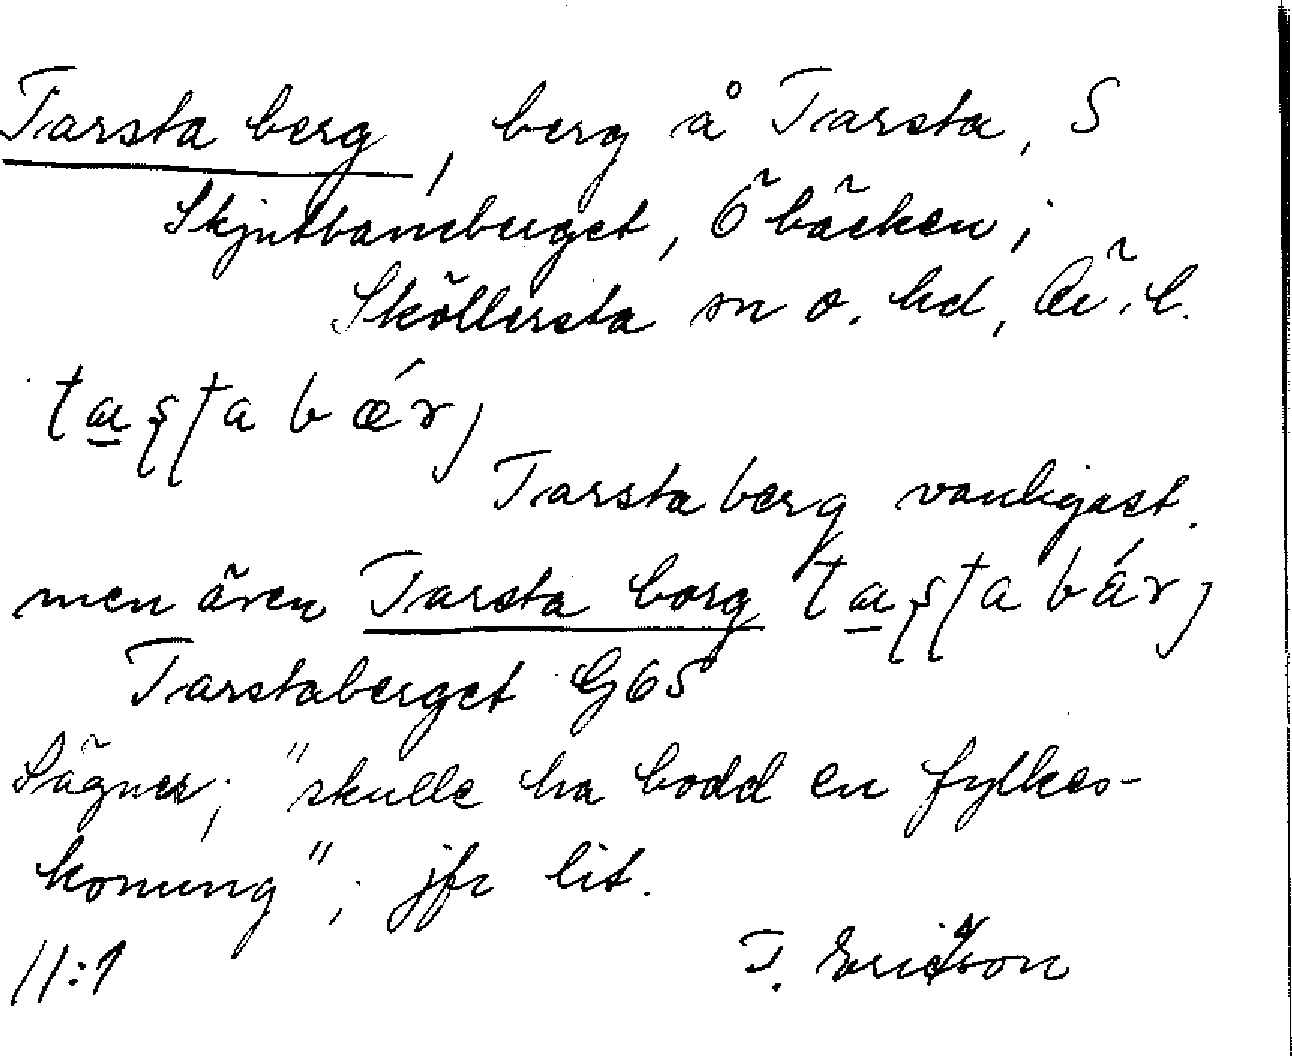 Tarsta berg, berg å Tarsta, S
Skjutbaneberget, Ö bäcken i
Sköllersta sn o. hd, Ör. l.
taʂʈa bǽrj
Tarsta berg vanligast.
men även Tarsta borg taʂʈa bárj
Tarstaberget G65
Sägner; "skulle ha bodd en fylkes-
konung"; jfr lit.
11:1 T. Ericsson